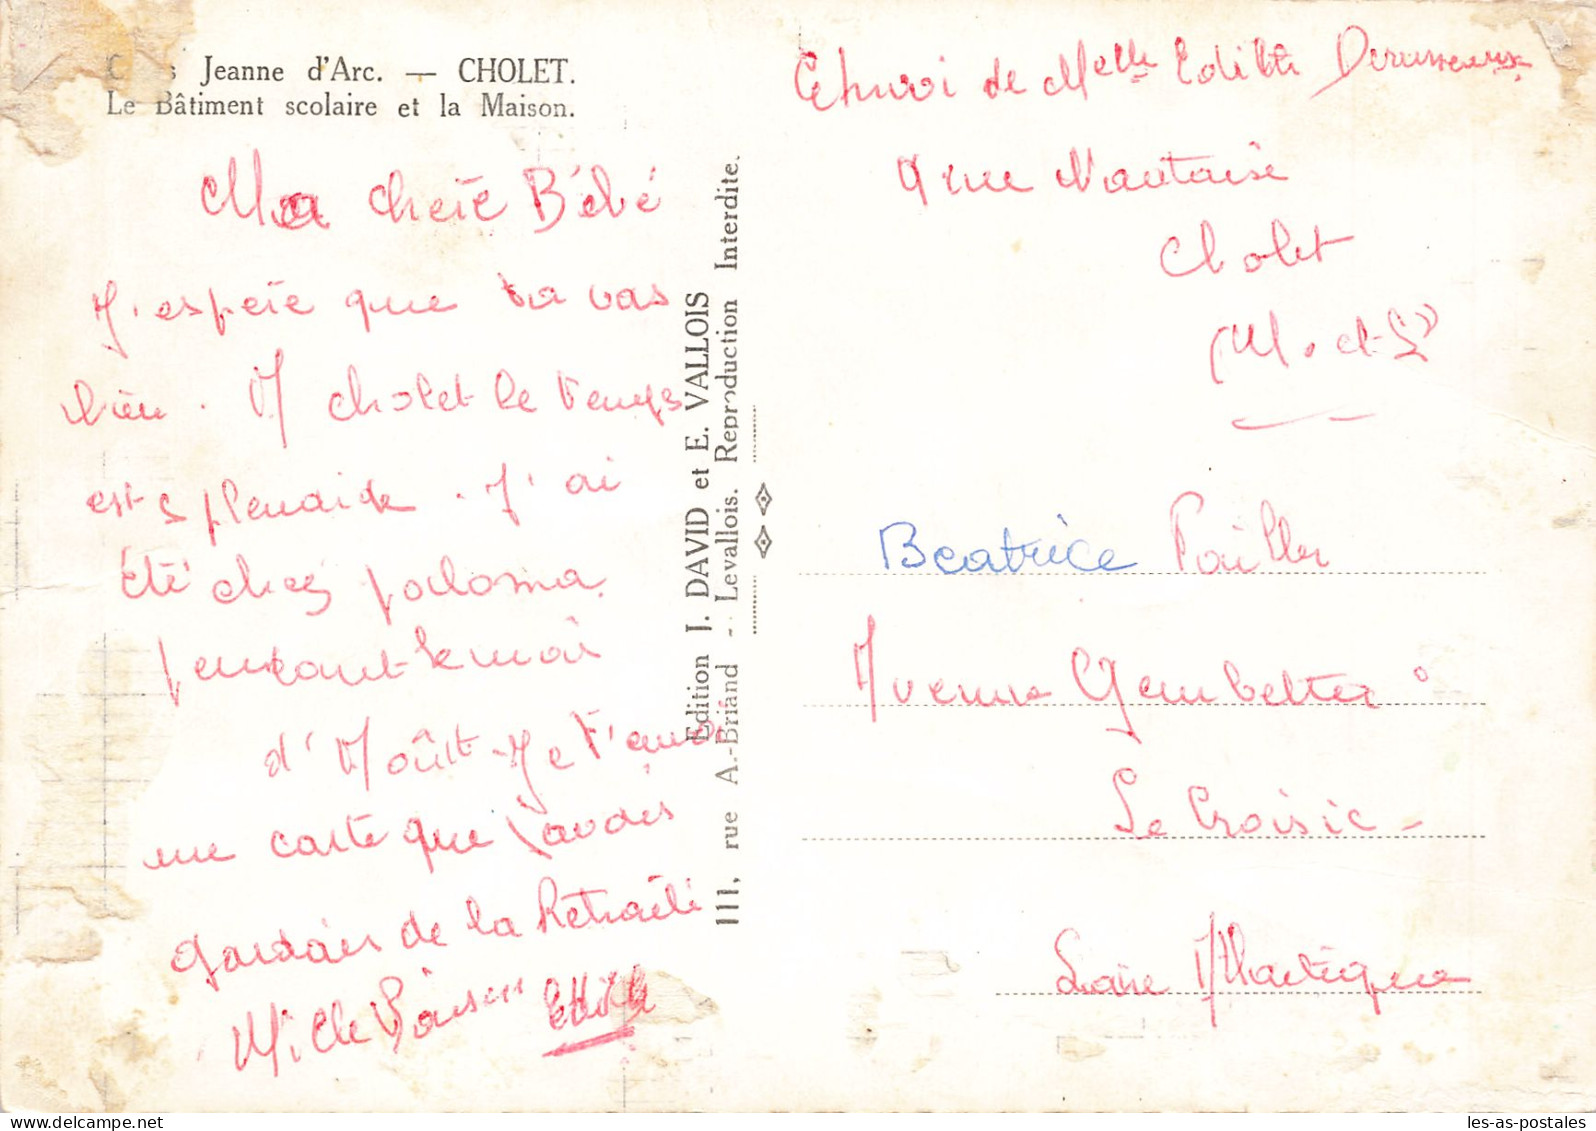 Jeanne d'Arc. — CHOLET.
Le Bâtiment scolaire et la Maison.
Ma cheïe Bébé
J'espeïe que ta vas
bien. A cholet le temps
est splendide. J'ai
été chez paloma
pendant le moi
d'Aoûtt. Je t'envoi
une carte que j'avais
gardais de la Retraite
Mille Baisers Edith
Edition J. DAVID et E. VALLOIS
111, rue A.-Briand - Levallois. Reproduction Interdite.
de Melle Edith
9 rue Nantaise
Cholet
(M. et L)
Beatrice Pailler
Avenue Gambetta
Le Croisic -
Loire Atlantique
les-as-postales.com